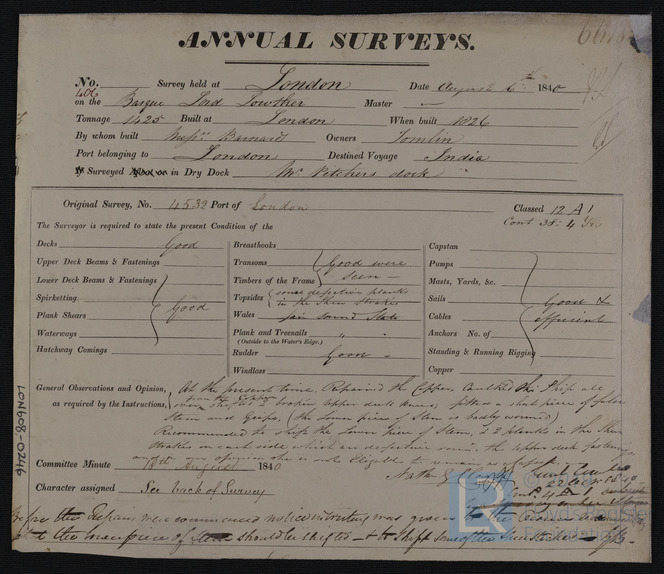 ANNUAL SURVEYS.
No. 406 Survey held at London Date August 6th 1840
on the Barque Lord Lowther Master —
Tonnage 1425 Built at London When built 1826
By whom built Messrs Barnard Owners Tomlin
Port belonging to London Destined Voyage India
If Surveyed Afloat or in Dry Dock Mr Pitchers dock
Original Survey, No. 4532 Port of London Classed 12 A1
Cont 38: 4 Yrs
The Surveyor is required to state the present Condition of the
Decks Good
Upper Deck Beams & Fastenings
Lower Deck Beams & Fastenings
Spirketting
Plank Shears Good
Waterways
Hatchway Comings
Breasthooks
Transoms Good were
Timbers of the Frame seen —
Topsides some defective planks
in the Sheer Strakes
Wales fair sound State
Plank and Treenails " "
(Outside to the Water's Edge.)
Rudder Good -
Windlass
Capstan
Pumps
Masts, Yards, &c.
Sails Good &
Cables efficient
Anchors No. of
Standing & Running Rigging
Copper
General Observations and Opinion, At the present time, Repaired the Copper, Caulked the Ship all
from the Copper
as required by the Instructions, broken upper deck knees, a short piece of false
Stem and Gripe, (the lower piece of Stem is badly wounded)
Recommended to shift the lower piece of Stem, & 2 planks in the Sheer
Strakes on each side which are defective, the upper deck fastening
and in our opinion she is not Eligible to remain
Committee Minute 18th August 1840
Character assigned See back of Survey
Before the Repairs were commenced notice in writing was given to the
the lower piece of Stem should be shifted & to Shift some of the Sheerstrakes
LON608-0246